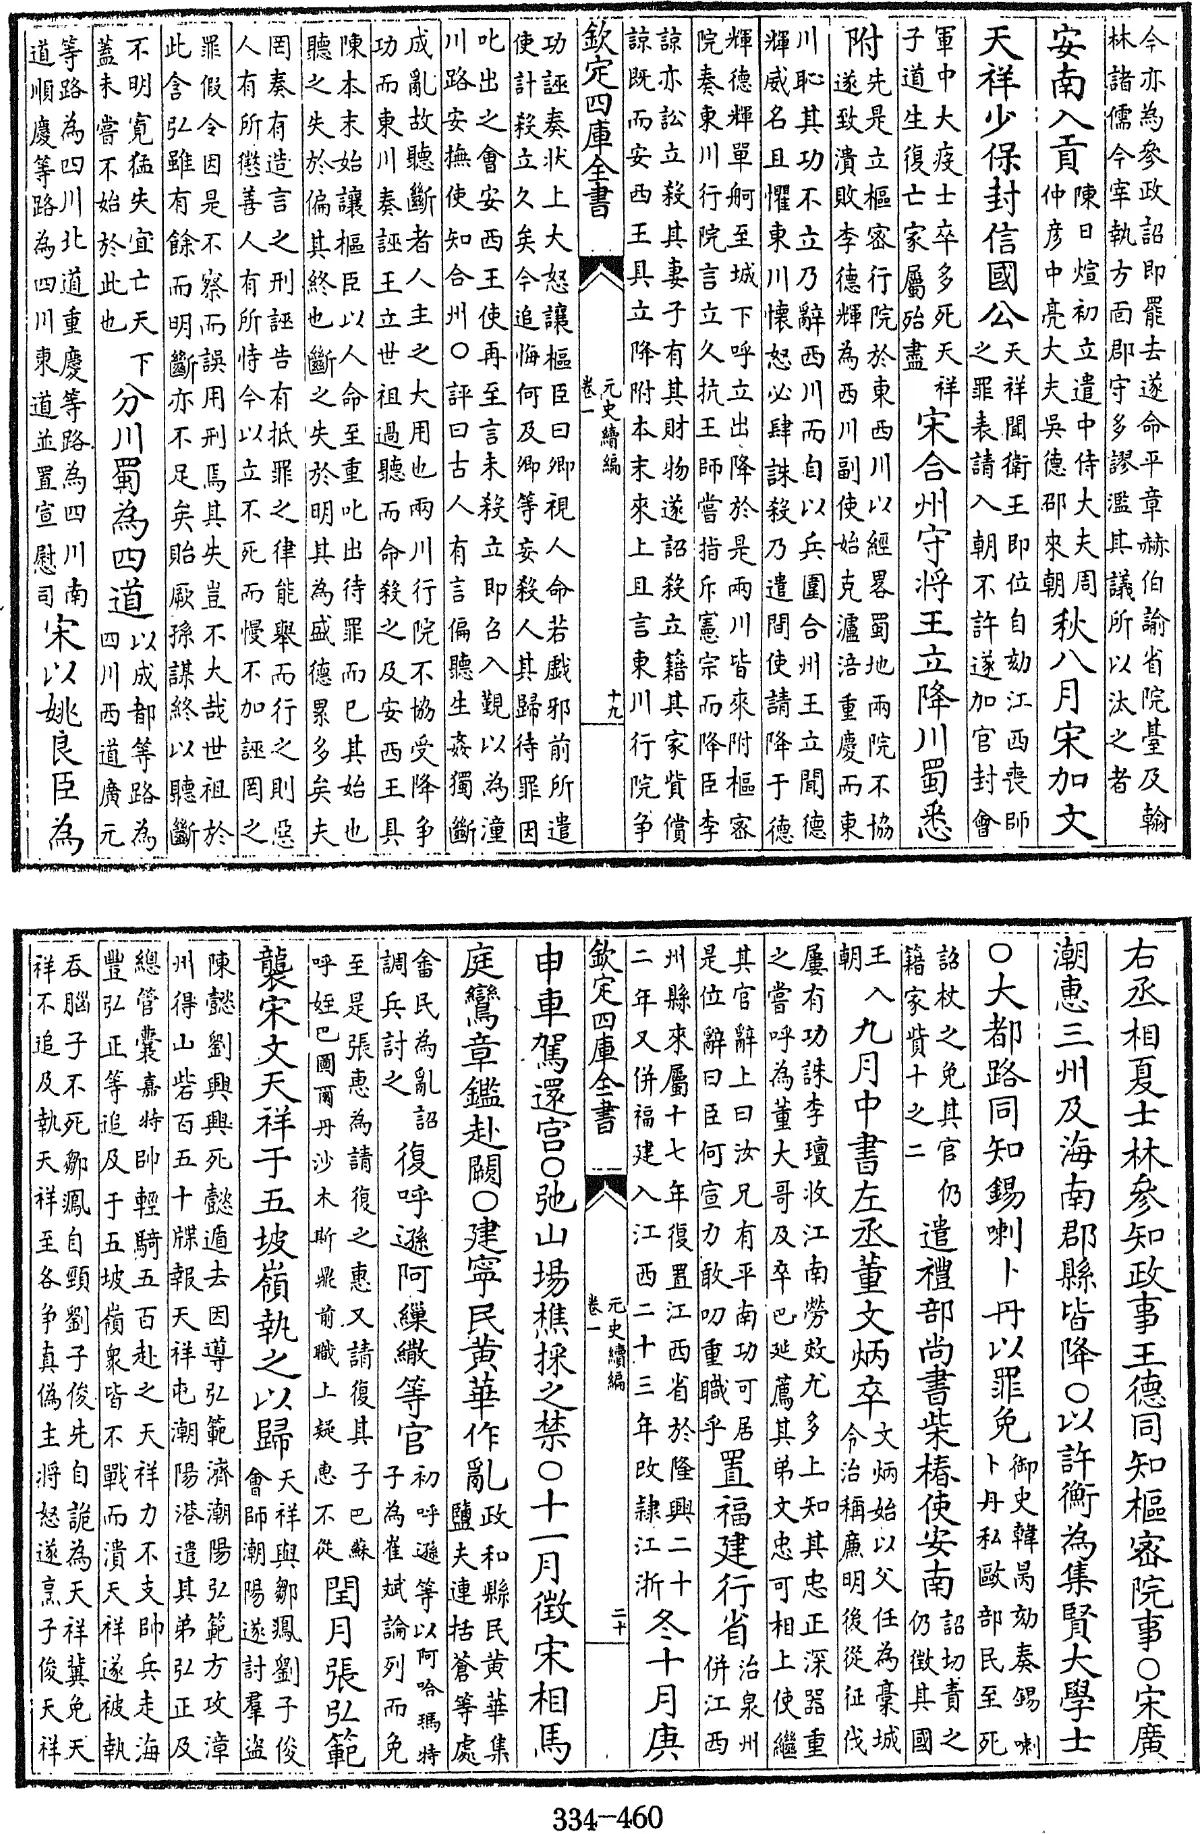 今亦為參政詔即罷去遂命平章赫伯諭省院臺及翰
林諸儒今宰執方面郡守多謬濫其議所以汰之者
安南入貢
陳日煊初立遣中侍大夫周
仲彦中亮大夫吳德邵來朝
秋八月宋加文
天祥少保封信國公
天祥聞衛王即位自劾江西喪師
之罪表請入朝不許遂加官封會
軍中大疫士卒多死天祥
子道生復亡家屬殆盡
宋合州守將王立降川蜀悉
附
先是立樞密行院於東西川以經畧蜀地兩院不協
遂致潰敗李德輝為西川副使始克瀘涪重慶而東
川恥其功不立乃辭西川而自以兵圍合州王立聞德
輝威名且懼東川懷怒必肆誅殺乃遣間使請降于德
輝德輝單舸至城下呼立出降於是兩川皆來附樞密
院奏東川行院言立久抗王師嘗指斥憲宗而降臣李
諒亦訟立殺其妻子有其財物遂詔殺立籍其家貲償
諒既而安西王具立降附本末來上且言東川行院争
欽定四庫全書
元史續編
卷一
十九
功誣奏狀上大怒讓樞臣曰卿視人命若戲邪前所遣
使計殺立久矣今追悔何及卿等妄殺人其歸待罪因
叱出之會安西王使再至言未殺立即召入覲以為潼
川路安撫使知合州○評曰古人有言偏聽生姦獨斷
成亂故聽斷者人主之大用也兩川行院不協受降争
功而東川奏誣王立世祖過聽而命殺之及安西王具
陳本末始讓樞臣以人命至重叱出待罪而已其始也
聽之失於偏其終也斷之失於明其為盛德累多矣夫
罔奏有造言之刑誣告有抵罪之律能舉而行之則惡
人有所懲善人有所恃今以立不死而慢不加誣罔之
罪假令因是不察而誤用刑焉其失豈不大哉世祖於
此含弘雖有餘而明斷亦不足矣貽厥孫謀終以聽斷
不明寛猛失宜亡天下
蓋未嘗不始於此也
分川蜀為四道
以成都等路為
四川西道廣元
等路為四川北道重慶等路為四川南
道順慶等路為四川東道並置宣慰司
宋以姚良臣為
右丞相夏士林參知政事王德同知樞密院事○宋廣
潮惠三州及海南郡縣皆降○以許衡為集賢大學士
○大都路同知錫喇卜丹以罪免
御史韓昺劾奏錫喇
卜丹私歐部民至死
詔杖之免其官仍
籍家貲十之二
遣禮部尚書柴椿使安南
詔切責之
仍徵其國
王入
朝
九月中書左丞董文炳卒
文炳始以父任為稾城
令治稱廉明後從征伐
屢有功誅李璮收江南勞效尤多上知其忠正深器重
之嘗呼為董大哥及卒巴延薦其弟文忠可相上使繼
其官辭上曰汝兄有平南功可居
是位辭曰臣何宣力敢叨重職乎
置福建行省
治泉州
併江西
州縣來屬十七年復置江西省於隆興二十
二年又併福建入江西二十三年改隸江浙
冬十月庚
欽定四庫全書
元史續編
卷一
二十
申車駕還宫○弛山場樵採之禁○十一月徵宋相馬
庭鸞章鑑赴闕○建寧民黄華作亂
政和縣民黄華集
鹽夫連括蒼等處
畲民為亂詔
調兵討之
復呼遜阿纙繖等官
初呼遜等以阿哈瑪特
子為崔斌論列而免
至是張惠為請復之惠又請復其子巴蘇
呼姪巴圖爾丹沙木斯鼎前職上疑惠不從
閏月張弘範
襲宋文天祥于五坡嶺執之以歸
天祥與鄒㵯劉子俊
會師潮陽遂討羣盜
陳懿劉興興死懿遁去因導弘範濟潮陽弘範方攻漳
州得山砦百五十牒報天祥屯潮陽港遣其弟弘正及
總管囊嘉特帥輕騎五百赴之天祥力不支帥兵走海
豐弘正等追及于五坡嶺衆皆不戰而潰天祥遂被執
吞腦子不死鄒㵯自頸劉子俊先自詭為天祥冀免天
祥不追及執天祥至各争真偽主將怒遂烹子俊天祥
334-460